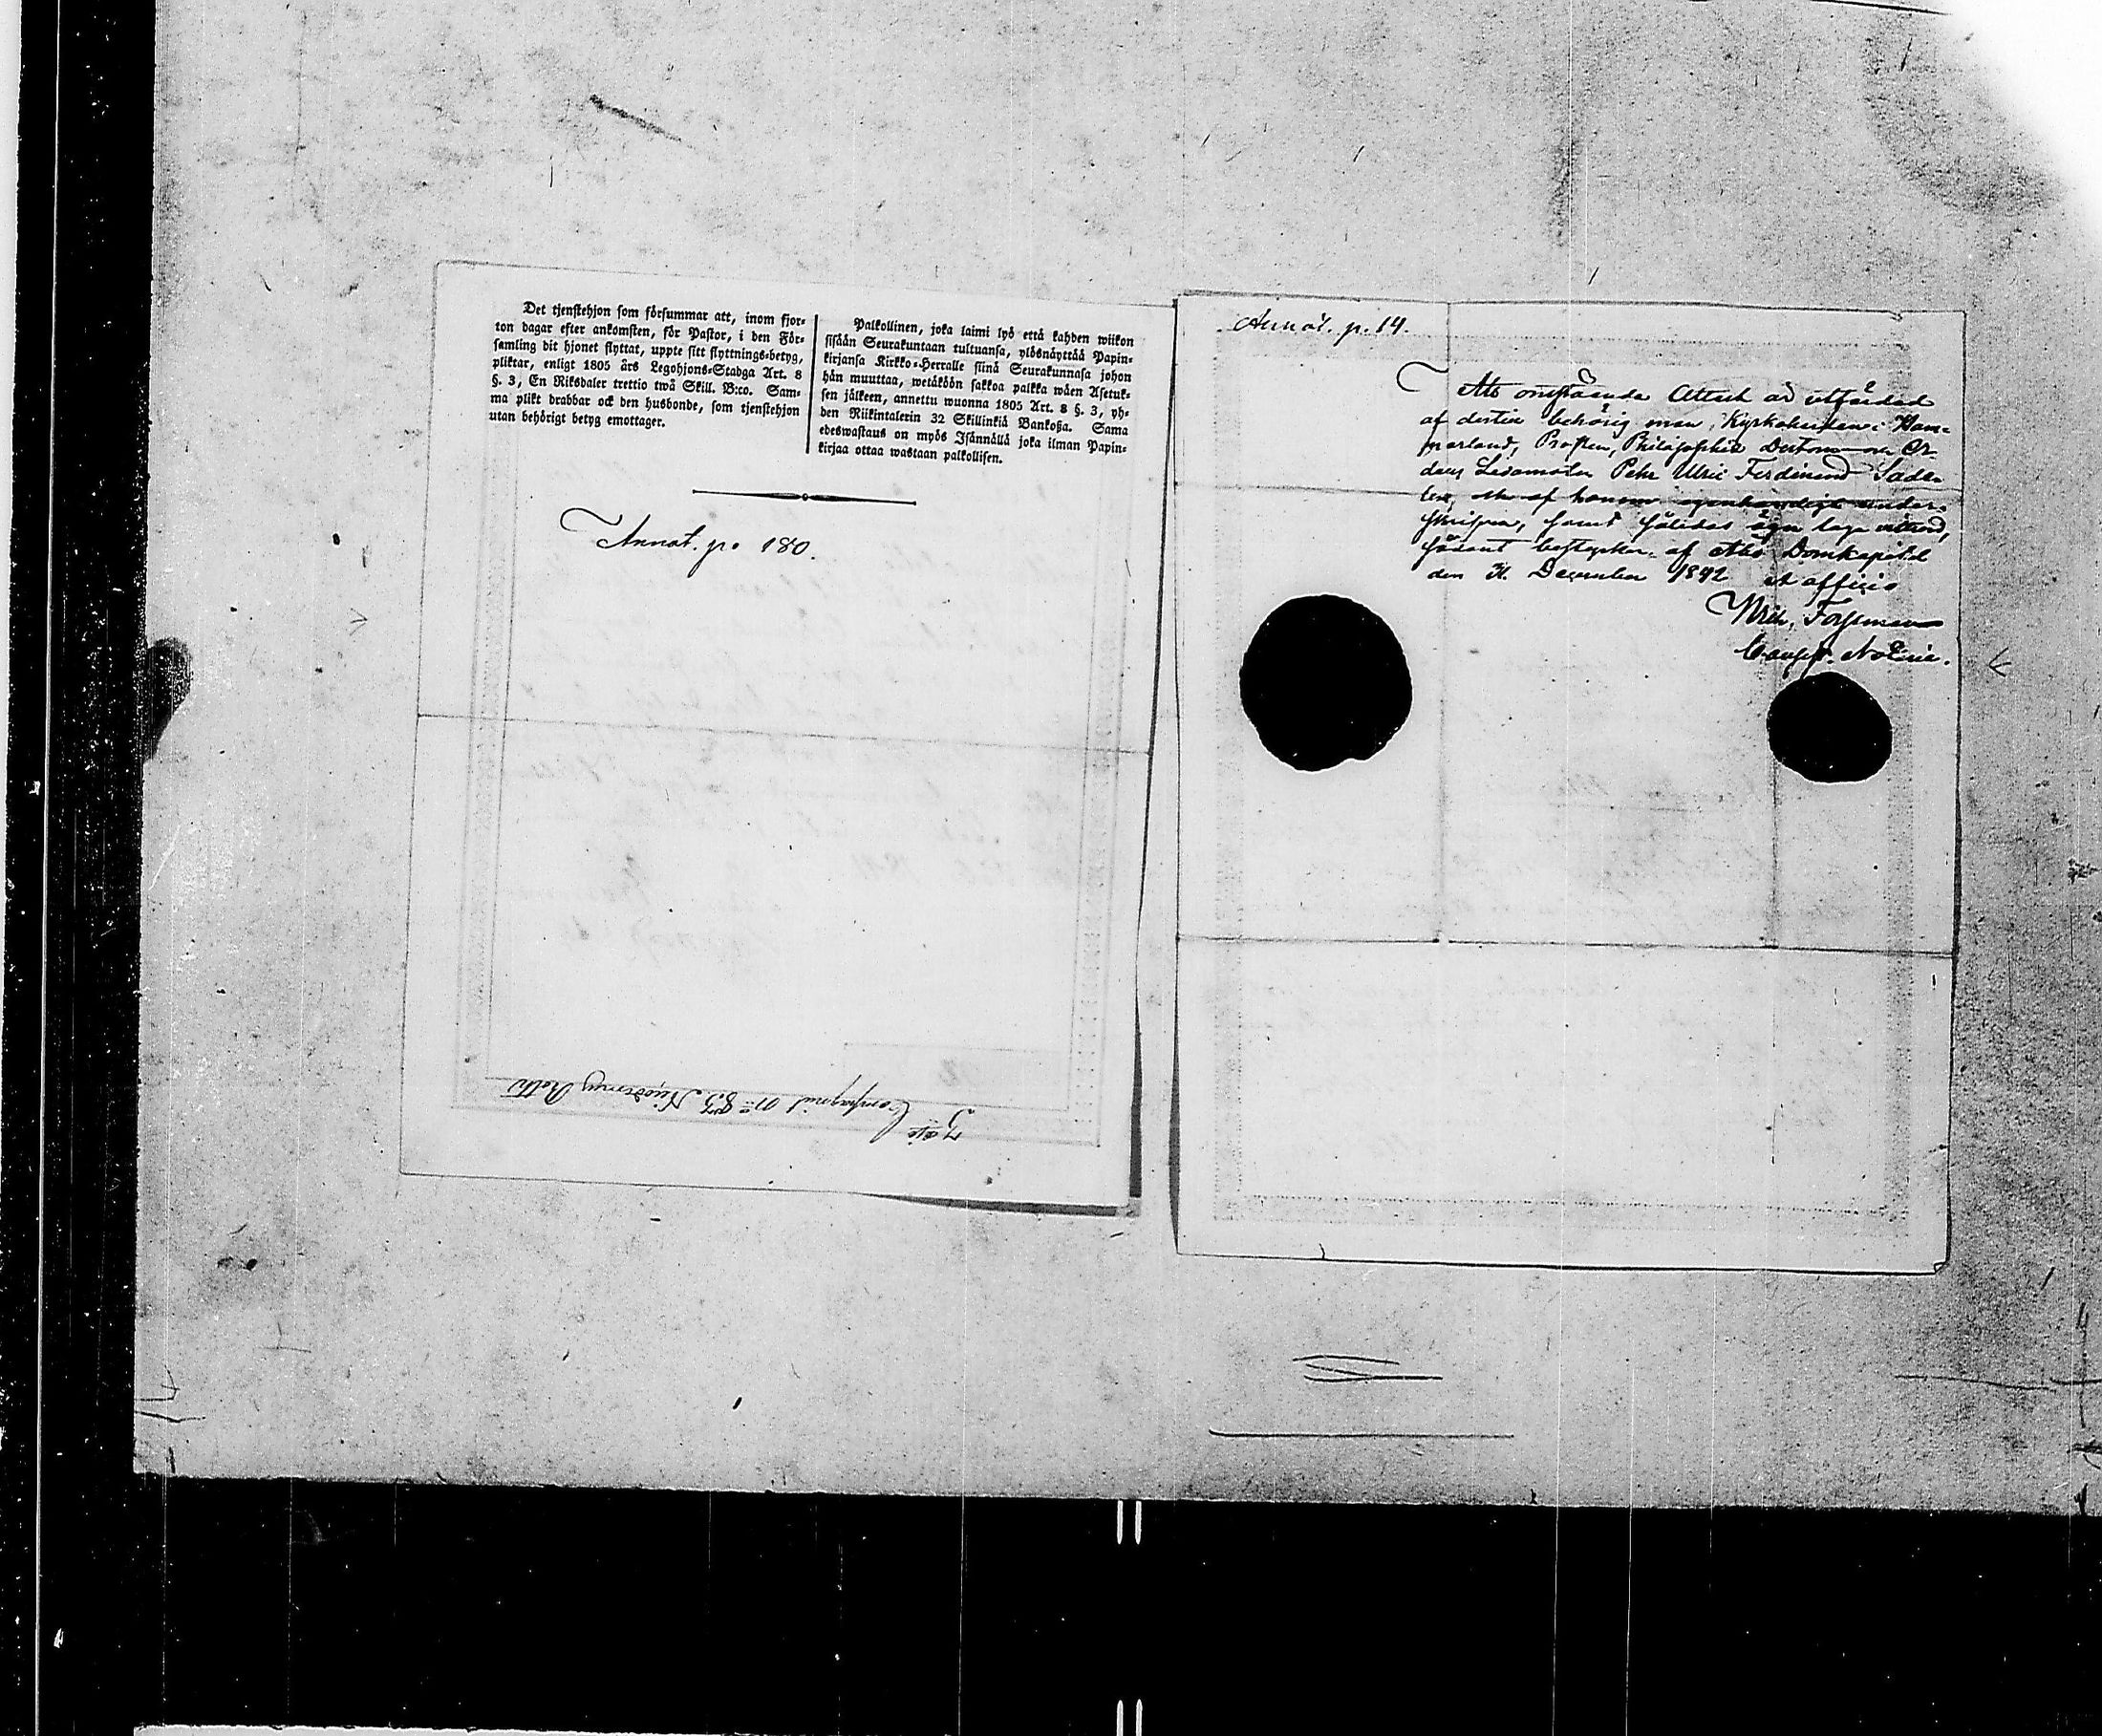 Det tjenstehjon som försummar att, inom fjor-
ton dagar efter ankomsten, för Pastor, i den För-
samling dit hjonet flyttat, uppte sitt flyttnings-betyg,
pliktar, enligt 1805 års Legohjons-Stadga Art. 8
§. 3, En Riksdaler trettio twå Skill. B:co. Sam-
ma plikt drabbar ock den husbonde, som tjenstehjon
utan behörigt betyg emottager.
Palkollinen, joka laimi lyö että kahden wiikon
sisään Seurakuntaan tultuansa, ylösnäyttää Papin-
kirjansa Kirkko-Herralle siinä Seurakunnasa johon
hän muuttaa, wetäköön sakkoa palkka wäen Asetuk-
sen jälkeen, annettu wuonna 1805 Art. 8 §. 3, yh-
den Riikintalerin 32 Skillinkiä Bankoßa. Sama
edeswastaus on myös Isännällä joka ilman Papin-
kirjaa ottaa wastaan palkollisen.
Annot. p. 180.
Compagniet No 83
Annot. p. 14.
Att omstående Attest är utfärdad
af dertill behörig man, Kyrkoherden i Ham-
marland, Prosten, Philosophie Doctorn och Or-
dens Ledamoten Petr Ulric Ferdinand Sade-
lin, och af honom egenhändigt under-
skrifven, samt således äga laga vitsord,
sådant bestyrker. af Åbo Domkapitel
den 31. December 1842 ex officio
Wilh. Forssman
Consist. Notarie.